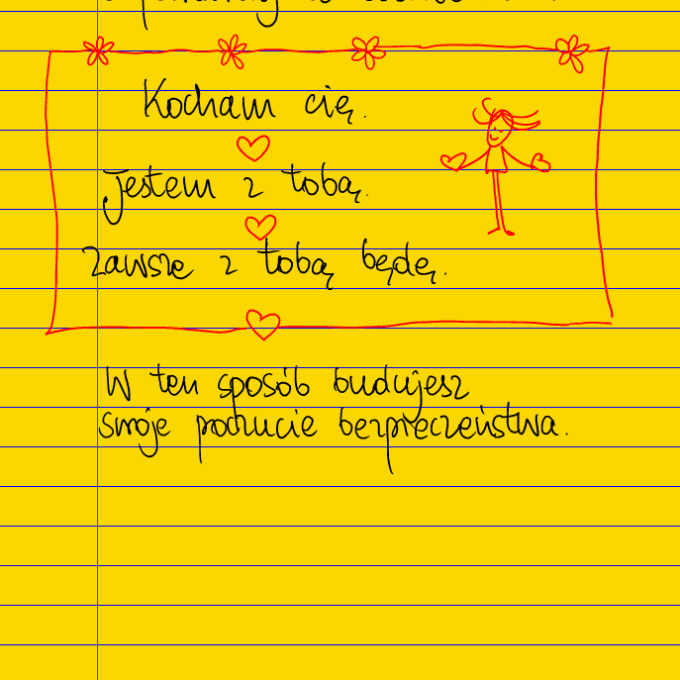 Kocham cię.
Jestem z tobą.
Zawsze z tobą będę.
W ten sposób budujesz
swoje poczucie bezpieczeństwa.